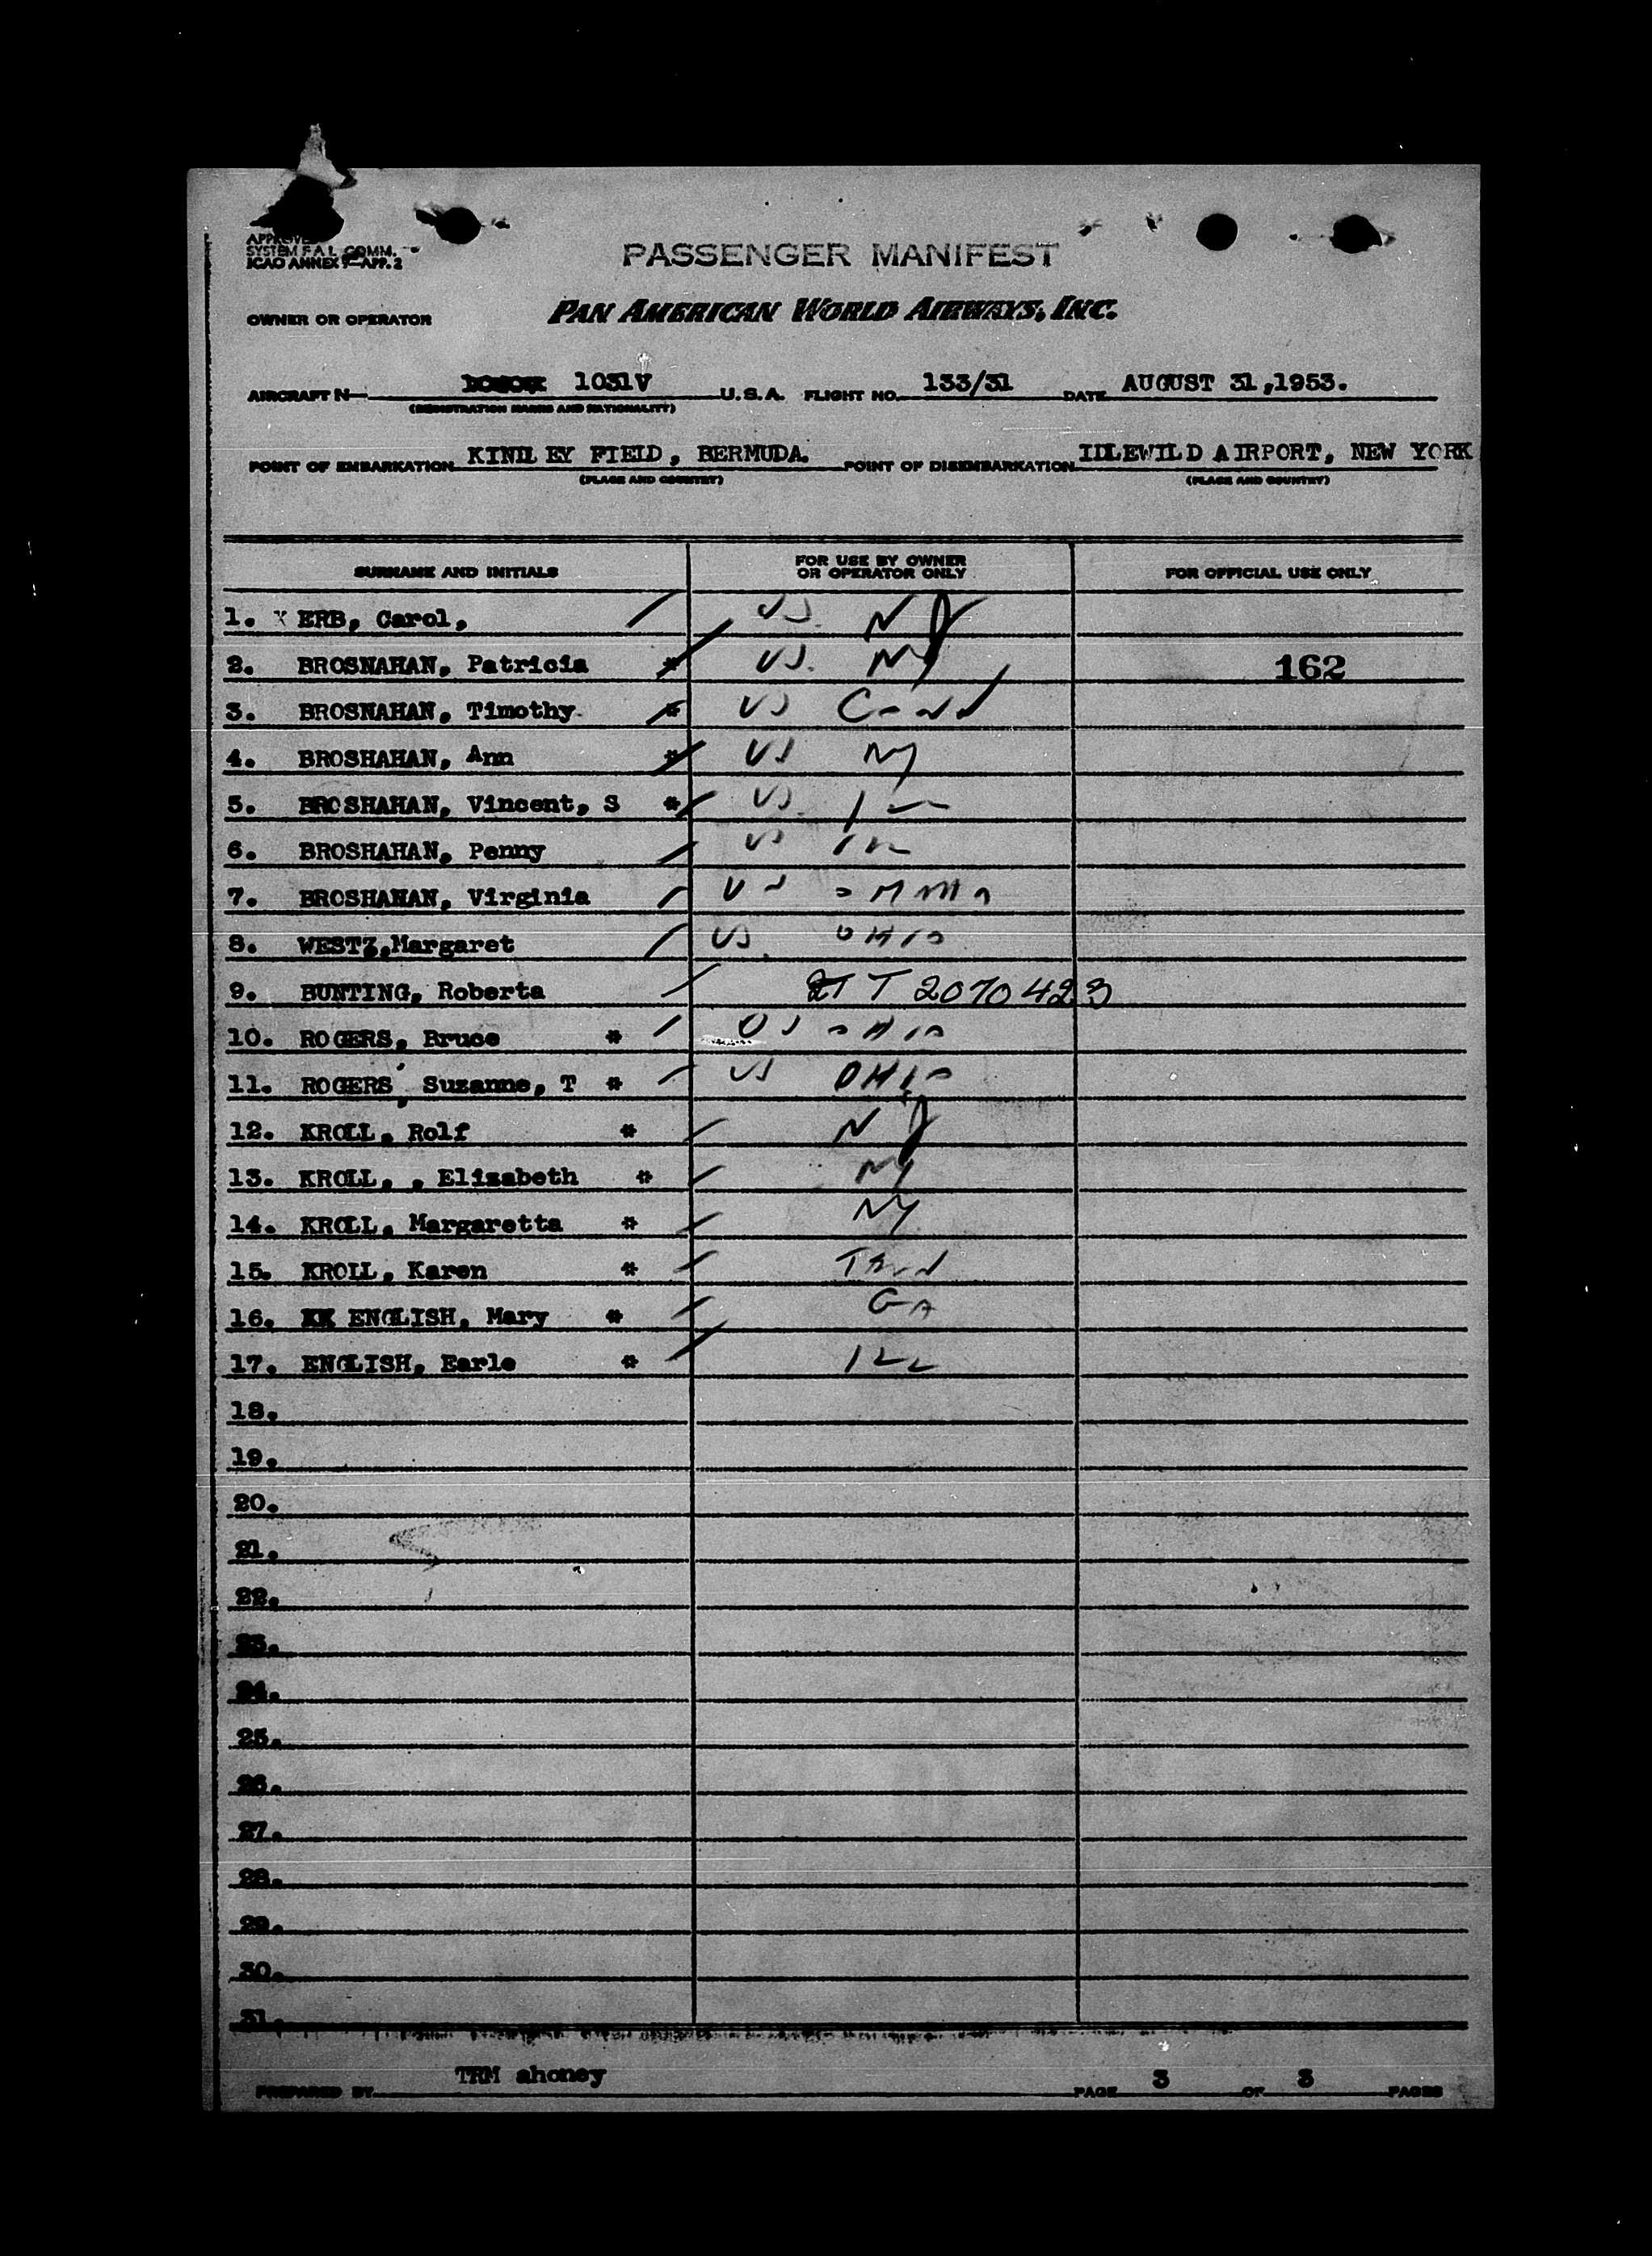 SYSTEM F.A.L. COMM.
ICAO ANNEX 9—APP. 2
PASSENGER MANIFEST
OWNER OR OPERATOR PAN AMERICAN WORLD AIRWAYS, INC.
AIRCRAFT N— 1031V U.S.A. FLIGHT NO. 133/31 DATE AUGUST 31,1953.
(REGISTRATION MARKS AND NATIONALITY)
POINT OF EMBARKATION KINDLEY FIELD, BERMUDA. POINT OF DISEMBARKATION IDLEWILD AIRPORT, NEW YORK
(PLACE AND COUNTRY) (PLACE AND COUNTRY)
SURNAME AND INITIALS FOR USE BY OWNER OR OPERATOR ONLY FOR OFFICIAL USE ONLY
1. X ERB, Carol, US. NJ
2. BROSNAHAN, Patricia * US. NY 162
3. BROSNAHAN, Timothy * US Conn
4. BROSHAHAN, Ann * US NY
5. BROSHAHAN, Vincent, S * US.
6. BROSHAHAN, Penny US
7. BROSHAHAN, Virginia US
8. WESTZ,Margaret US. OHIO
9. BUNTING, Roberta T 2070423
10. ROGERS, Bruce * US OHIO
11. ROGERS, Suzanne, T * US OHIO
12. KROLL, Rolf * NJ
13. KROLL, , Elizabeth * NY
14. KROLL, Margaretta * NY
15. KROLL, Karen *
16. XX ENGLISH, Mary * GA
17. ENGLISH, Earle * ILL
18.
19.
20.
21.
22.
23.
24.
25.
26.
27.
28.
29.
30.
31.
PREPARED BY TRM ahoney PAGE 3 OF 3 PAGES